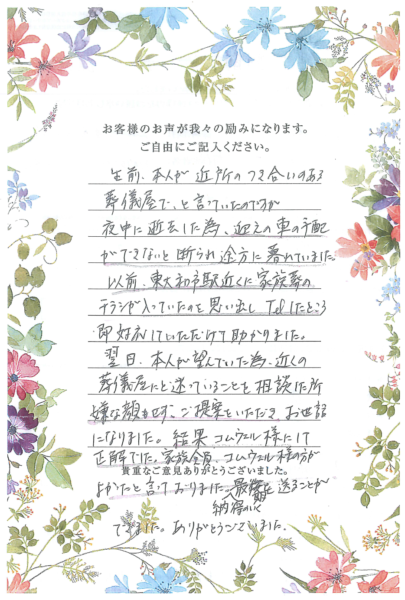 お客様のお声が我々の励みになります。
ご自由にご記入ください。
生前、本人が近所のつき合いのある
葬儀屋で、と言っていたのですが
夜中に逝去した為、迎えの車の手配
ができないと断られ途方に暮れていました。
以前、東大和市駅近くに家族葬の
チラシが入っていたのを思い出しTelしたところ
即対応していただけて助かりました。
翌日、本人が望んでいた為、近くの
葬儀屋にと迷っていることを相談した所
嫌な顔もせずご提案をいただき、お世話
になりました。結果コムウェル様にして
正解でした。家族全員、コムウェル様の方が
貴重なご意見ありがとうございました。
よかったと言っておりました。最後を送ることが
納得いく
できました。ありがとうございました。